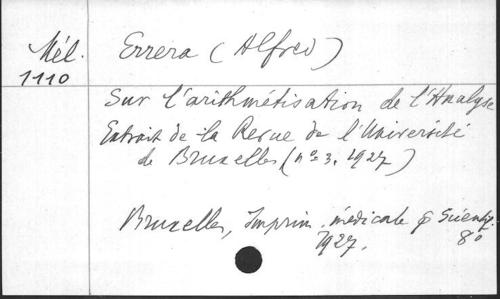 Mél.
1110
Errera (Alfred)
Sur l'arithmétisation de l'Analyse
Extrait de la Revue de l'Université
de Bruxelles (no 3, 1927)
Bruxelles, Imprim. médicale & Scientif.
1927. 8o